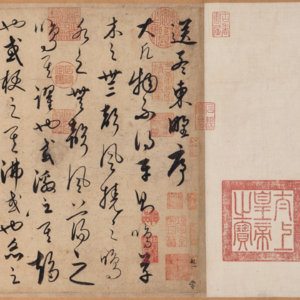 太上
皇帝
之寶
送孟東野序
大凡物不得平則鳴草
木之無聲風撓之鳴
水之無聲風蕩之
鳴其躍也或激之其趨
也或梗之其沸也或炙之